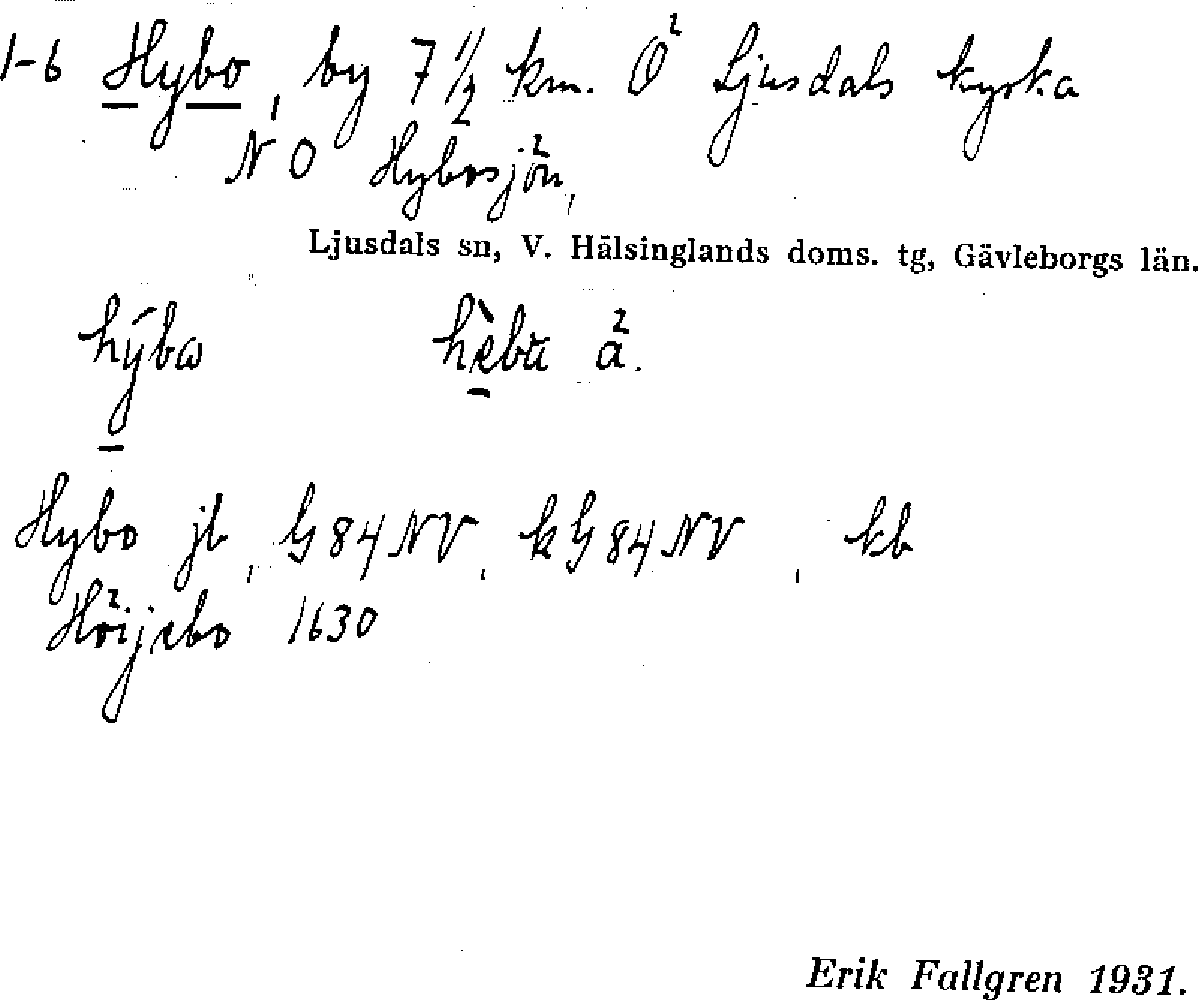 1-6 Hybo, by 7 1/2 km. Ö Ljusdals kyrka
NO Hybosjön,
Ljusdals sn, V. Hälsinglands doms. tg, Gävleborgs län.
hýbω å.
Hybo jb, G84NV, kG84NV, kb
Höijebo 1630
Erik Fallgren 1931.